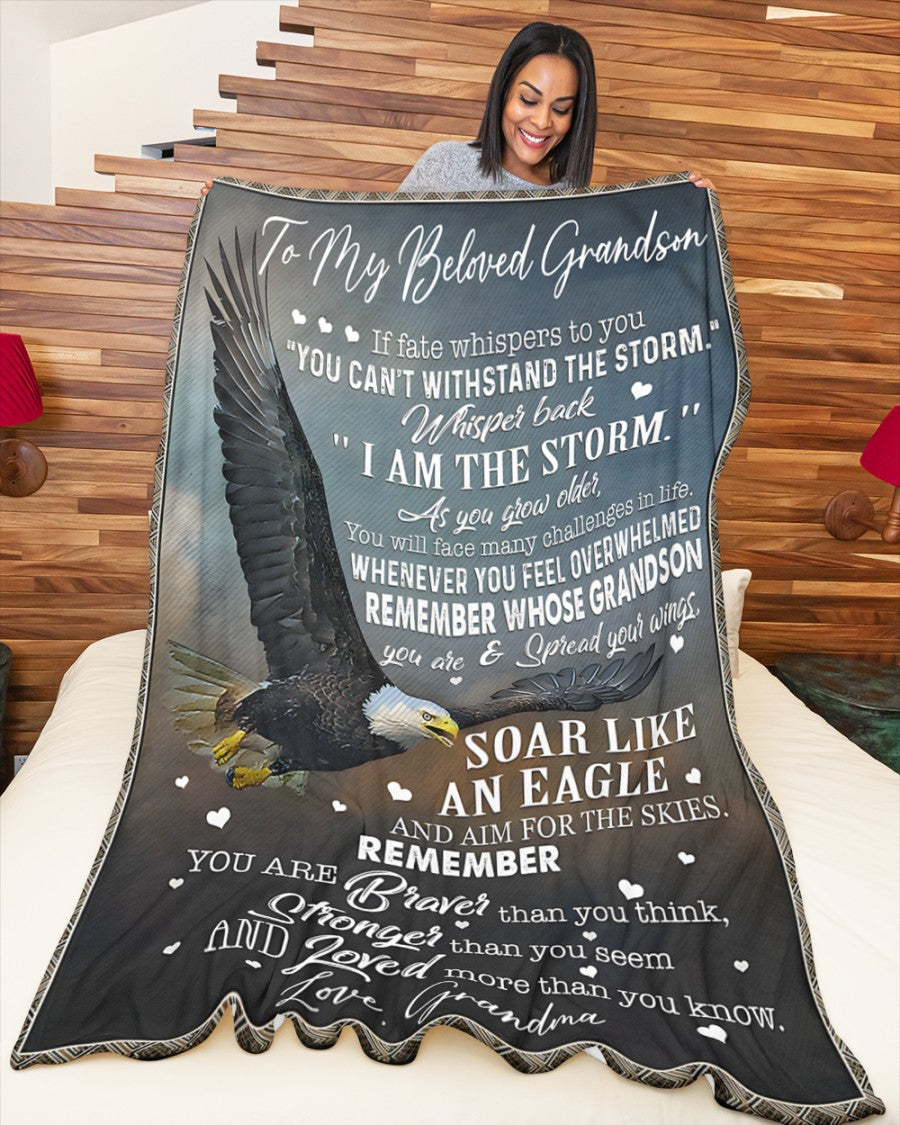 To My Beloved Grandson
If fate whispers to you
"YOU CAN'T WITHSTAND THE STORM."
Whisper back
"I AM THE STORM."
As you grow older,
You will face many challenges in life.
WHENEVER YOU FEEL OVERWHELMED
REMEMBER WHOSE GRANDSON
you are & Spread your wings,
SOAR LIKE
AN EAGLE
AND AIM FOR THE SKIES.
REMEMBER
YOU ARE Braver than you think,
Stronger than you seem
AND Loved more than you know.
Love, Grandma